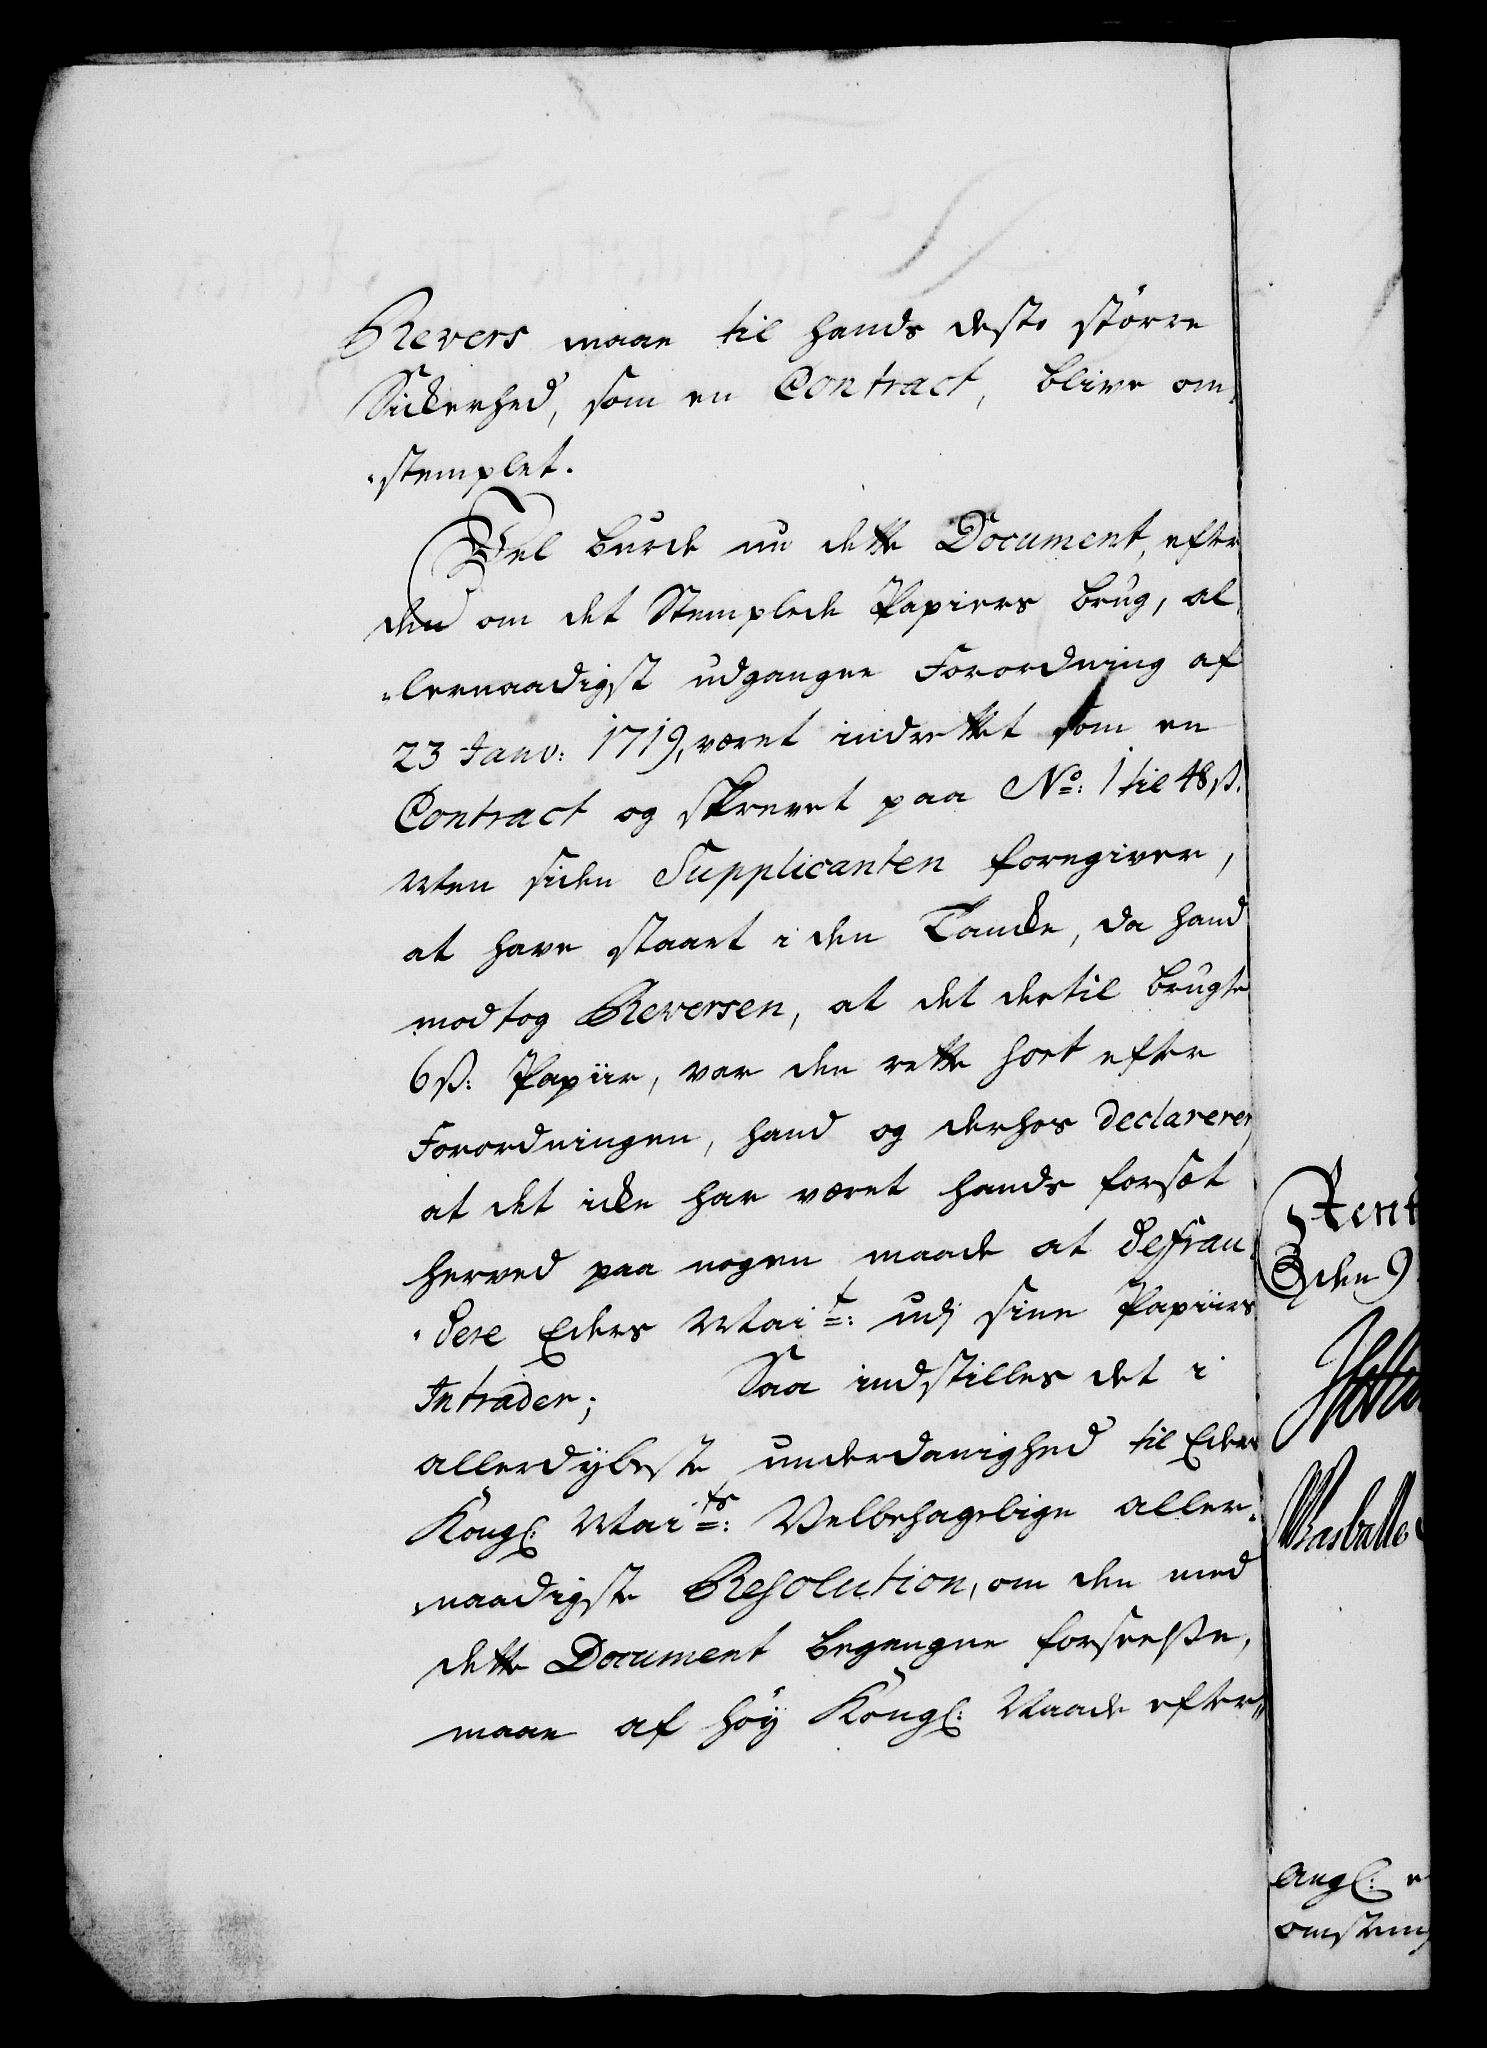 Revers maae til hands desto större
Sickerhed, som en Contract, blive om-
-stemplet.
Vel burde nu dette Document, efter
den om det Stemplede Papiirs brug, al-
-lernaadigst udgangne Forordning af
23 Janv: 1719, været indrettet som en
Contract og skrevet paa No: 1 til 48 ß.
Men siden Supplicanten foregiver,
at have staaet i den Tancke, da hand
modtog Reversen, at det dertil brugte
6 ß: Papiir, var den rette sort efter
Forordningen, hand og derhos declarerer,
at det icke har været hands forsæt
herved paa nogen maade at defrau-
-dere Eders Mait: udj sine Papiirs
Intrader; Saa indstilles det i
allerdÿbeste underdanighed til Eders
Kongl: Maits: Velbehagelige aller-
naadigste Resolution, om den med
dette Document begangne forseelße,
maae af höÿ Kongl: Naade efter-
Rent
den 9
Angl: e
omstemp